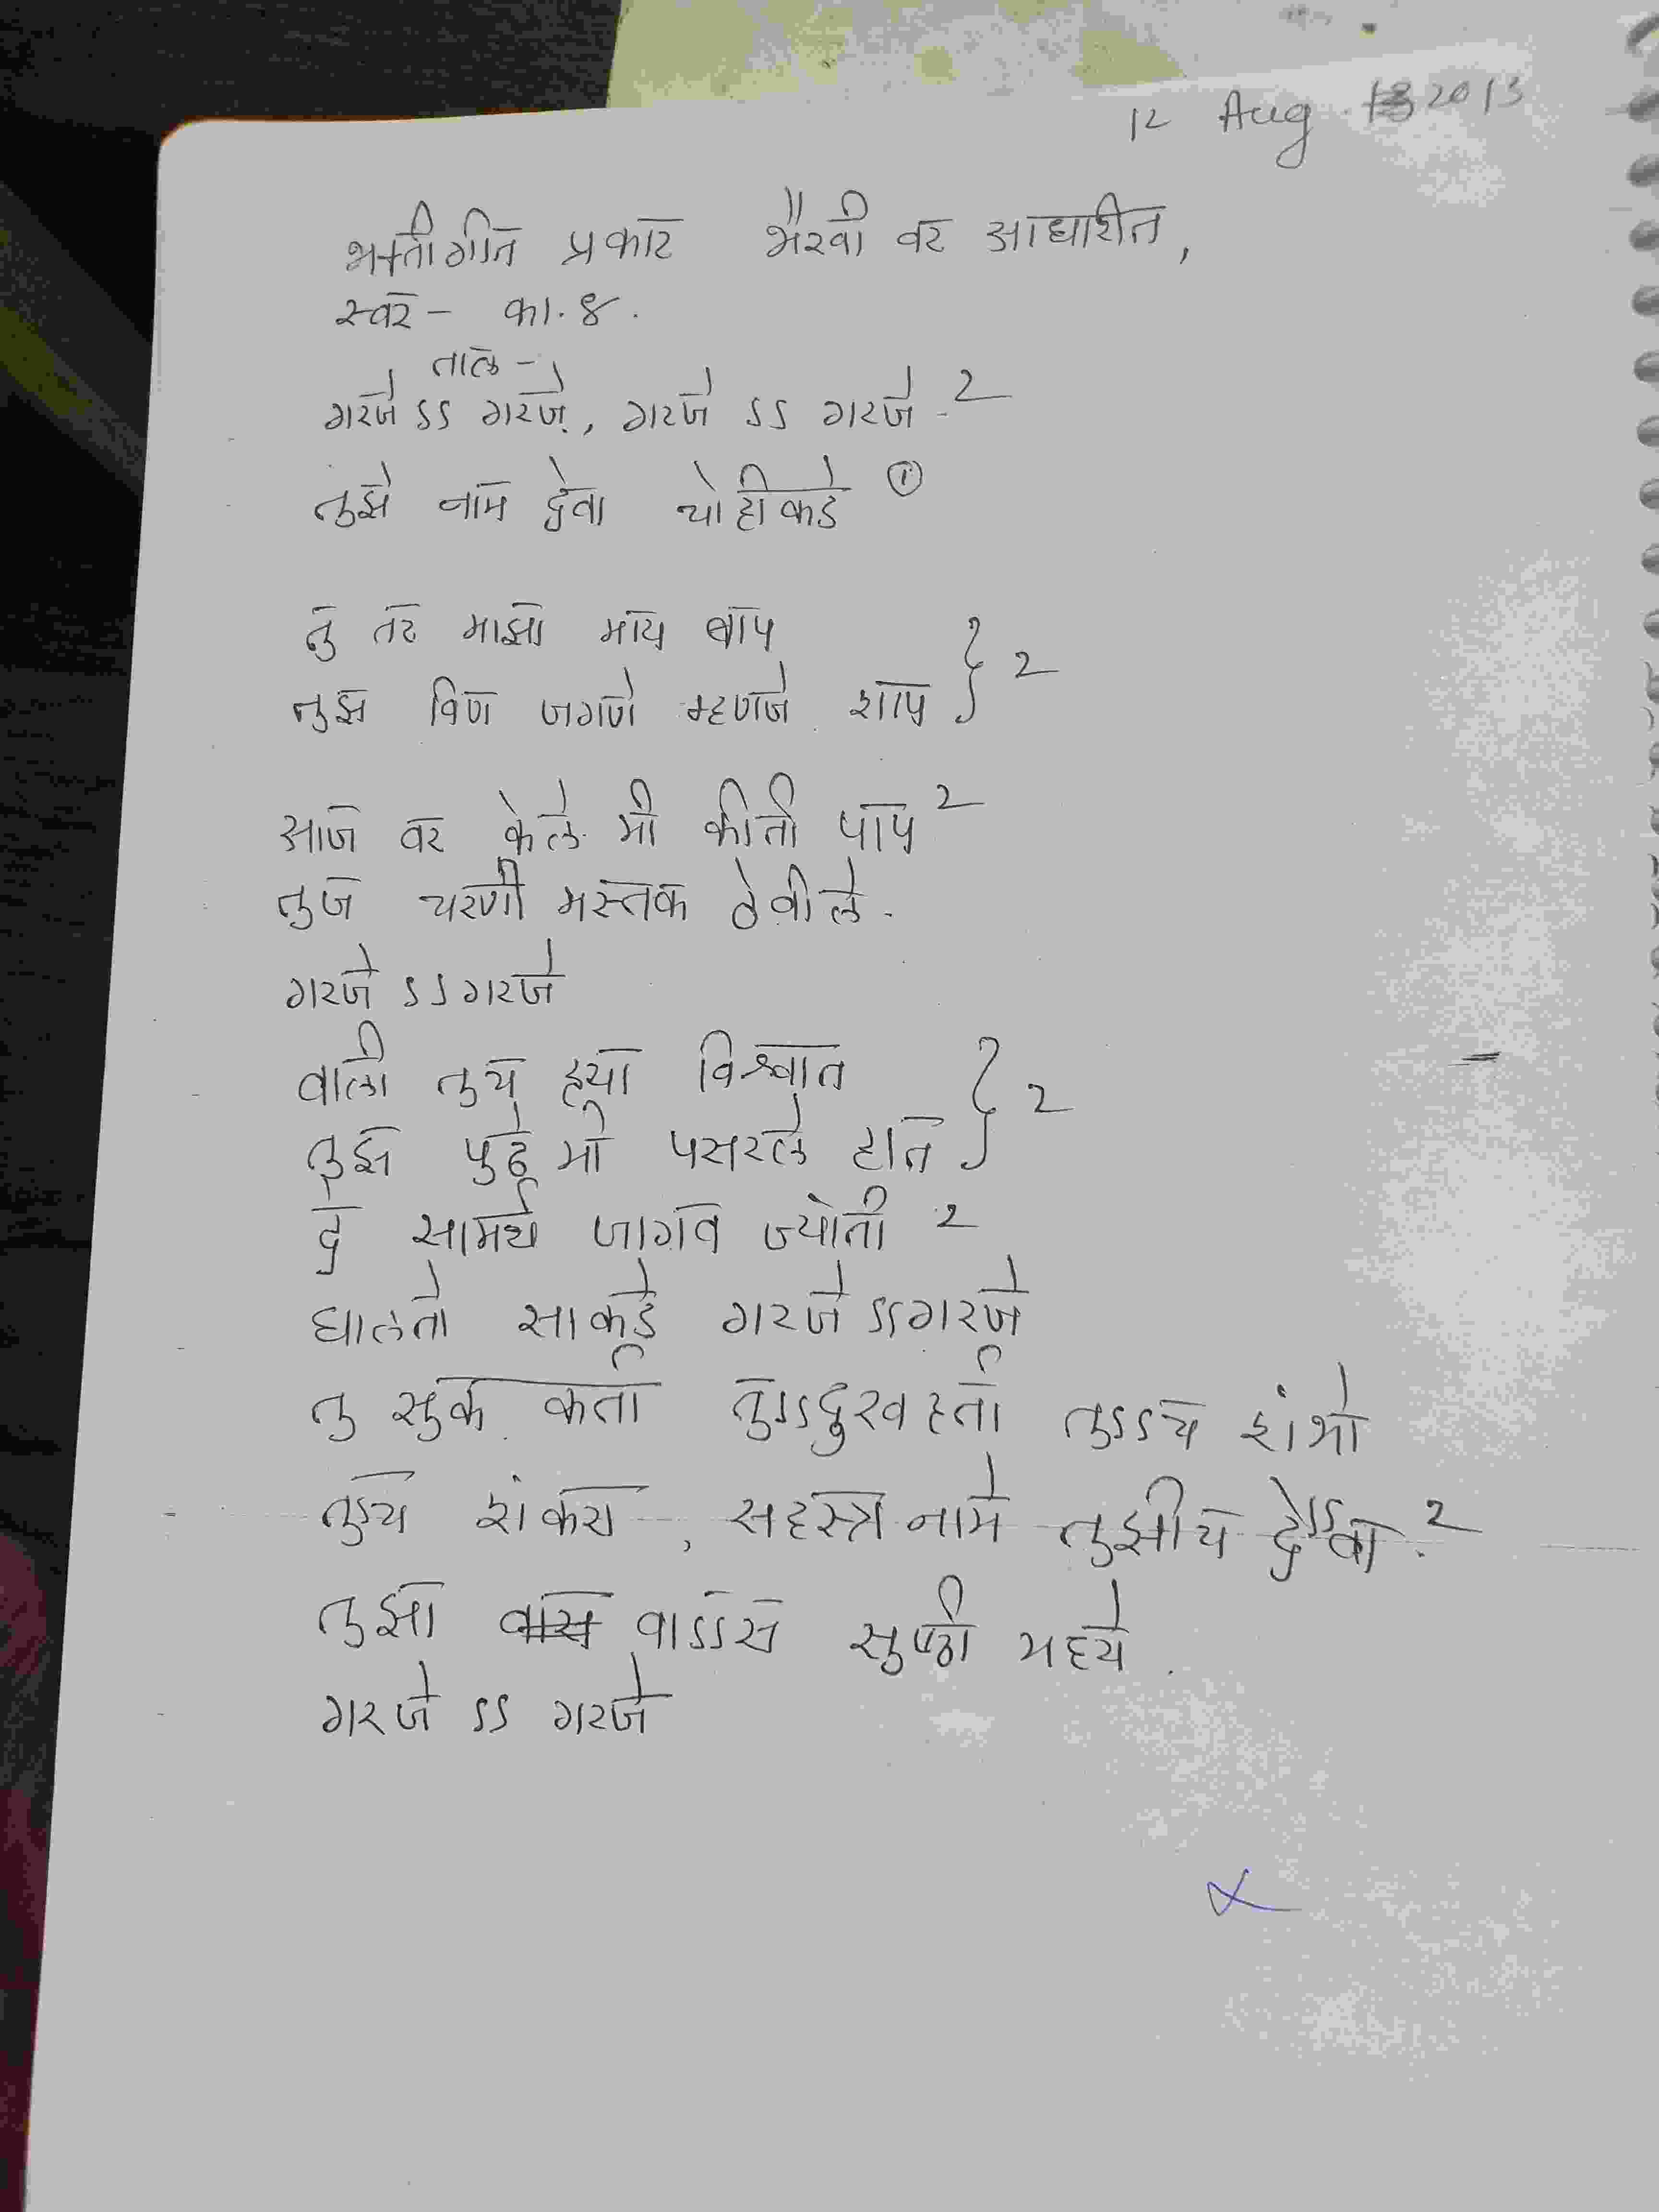 12 Aug 2013
भक्तीगीत प्रकार भैरवी वर आधारीत,
स्वर - का. ४.
ताल -
गरजे ऽऽ गरजे, गरजे ऽऽ गरजे - 2
तुझे नाम देवा चोहीकडे ①
तु तर माझा माय बाप
तुझ विण जगणे म्हणजे शाप } 2
आज वर केले मी कीती पाप 2
तुज चरणी मस्तक ठेवीले.
गरजे ऽऽ गरजे
वाली तुच ह्या विश्वात
तुझ पुढे मी पसरले हात } 2
दे सामर्थ जागव ज्योती 2
घालतो साकडे गरजे ऽऽ गरजे
तु सुक कर्ता तुऽऽ दुख हर्ता तुऽऽच शंभो
तुच शंकरा, सहस्त्र नामे तुझीच देऽऽवा. 2
तुझा वाऽऽस सुष्टी मध्ये.
गरजे ऽऽ गरजे